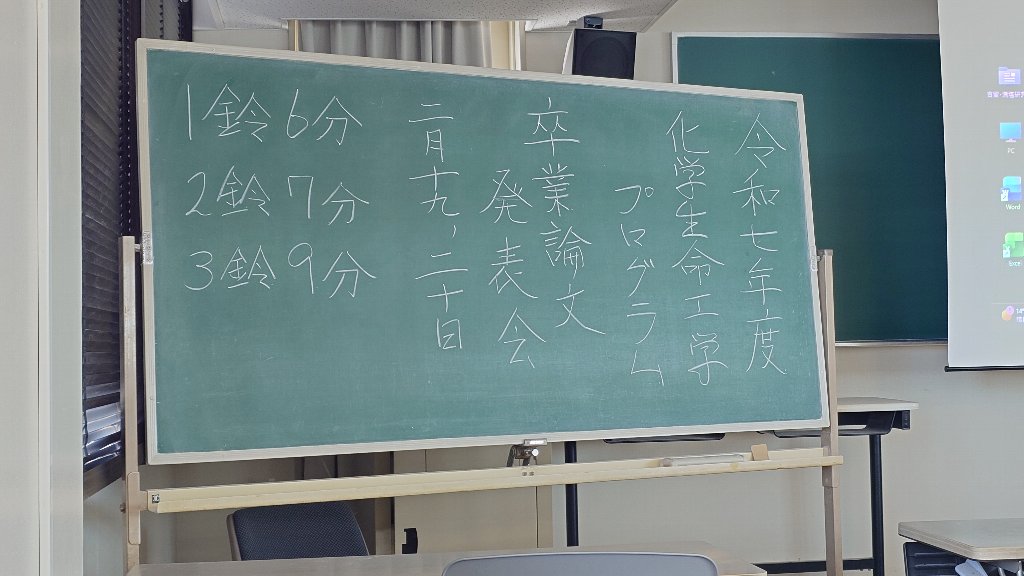 令和七年度
化学生命工学
プログラム
卒業論文
発表会
二月十九、二十日
1鈴 6分
2鈴 7分
3鈴 9分
PC
Word
Excel